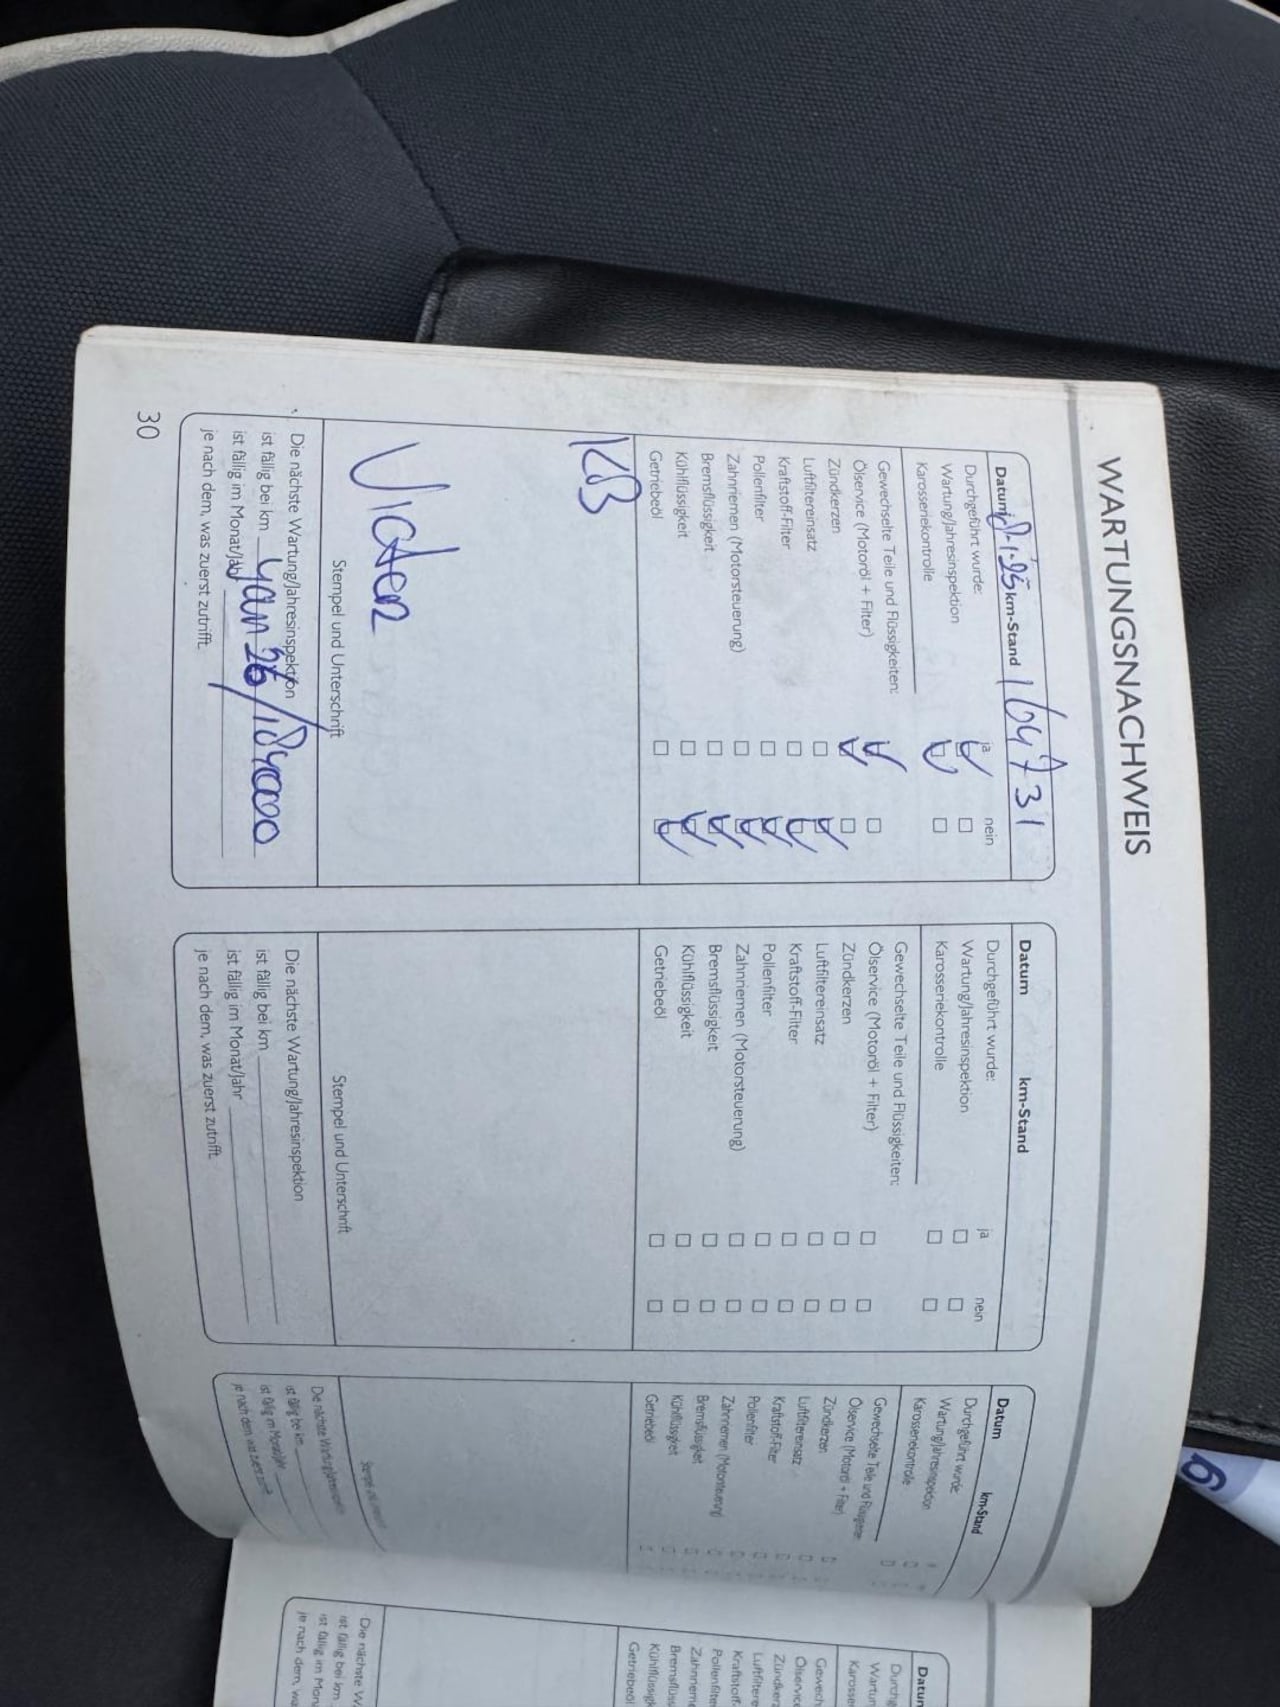 WARTUNGSNACHWEIS
Datum km-Stand 164731
Durchgeführt wurde: ja nein
Wartung/Jahresinspektion
Karosseriekontrolle
Gewechselte Teile und Flüssigkeiten:
Ölservice (Motoröl + Filter)
Zündkerzen
Luftfiltereinsatz
Kraftstoff-Filter
Pollenfilter
Zahnriemen (Motorsteuerung)
Bremsflüssigkeit
Kühlflüssigkeit
Getriebeöl
Stempel und Unterschrift
Die nächste Wartung/Jahresinspektion
ist fällig bei km
ist fällig im Monat/Jahr Jan 26/184000
je nach dem, was zuerst zutrifft.
Datum km-Stand
Durchgeführt wurde: ja nein
Wartung/Jahresinspektion
Karosseriekontrolle
Gewechselte Teile und Flüssigkeiten:
Ölservice (Motoröl + Filter)
Zündkerzen
Luftfiltereinsatz
Kraftstoff-Filter
Pollenfilter
Zahnriemen (Motorsteuerung)
Bremsflüssigkeit
Kühlflüssigkeit
Getriebeöl
Stempel und Unterschrift
Die nächste Wartung/Jahresinspektion
ist fällig bei km
ist fällig im Monat/Jahr
je nach dem, was zuerst zutrifft.
Datum km-Stand
Durchgeführt wurde:
Wartung/Jahresinspektion
Karosseriekontrolle
Gewechselte Teile und Flüssigkeiten
Ölservice (Motoröl + Filter)
Zündkerzen
Luftfiltereinsatz
Kraftstoff-Filter
Pollenfilter
Zahnriemen (Motorsteuerung)
Bremsflüssigkeit
Kühlflüssigkeit
Getriebeöl
Die nächste Wartung/Jahresinspektion
ist fällig bei km
ist fällig im Monat/Jahr
je nach dem, was zuerst zutrifft.
30
Datum
Durchg
Wartun
Karosse
Gewech
Ölservice
Zündkerz
Luftfiltere
Kraftstoff-
Pollenfilter
Zahnrieme
Bremsflüss
Kühlflüssigk
Getriebeöl
Die nächste W
ist fällig bei km
ist fällig im Mon
je nach dem, wa